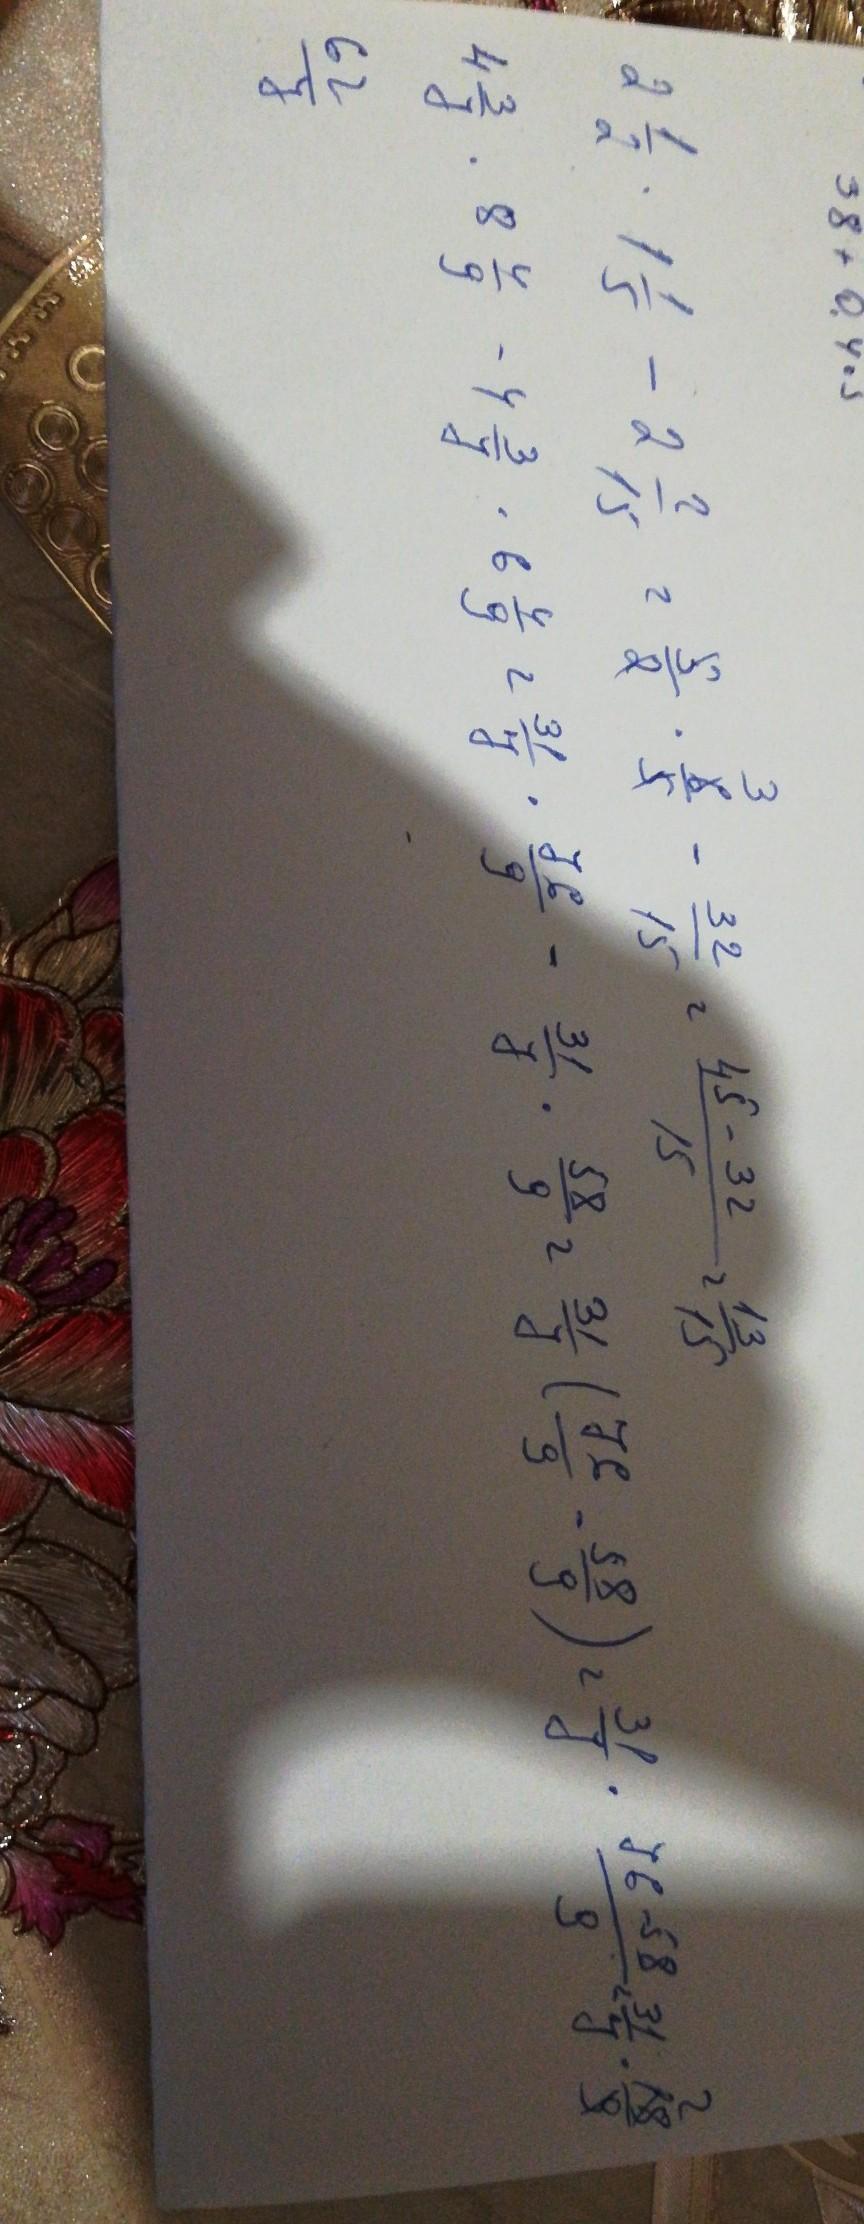 38 + 0,4 · 5
2 1/2 · 1 1/5 - 2 2/15 = 5/2 · 6/5 3 - 32/15 = 45-32/15 = 13/15
4 3/7 · 8 4/9 - 4 3/7 · 6 4/9 = 31/7 · 76/9 - 31/7 · 58/9 = 31/7 (76/9 - 58/9) = 31/7 · 76-58/9 = 31/7 · 18/9 2
62/7